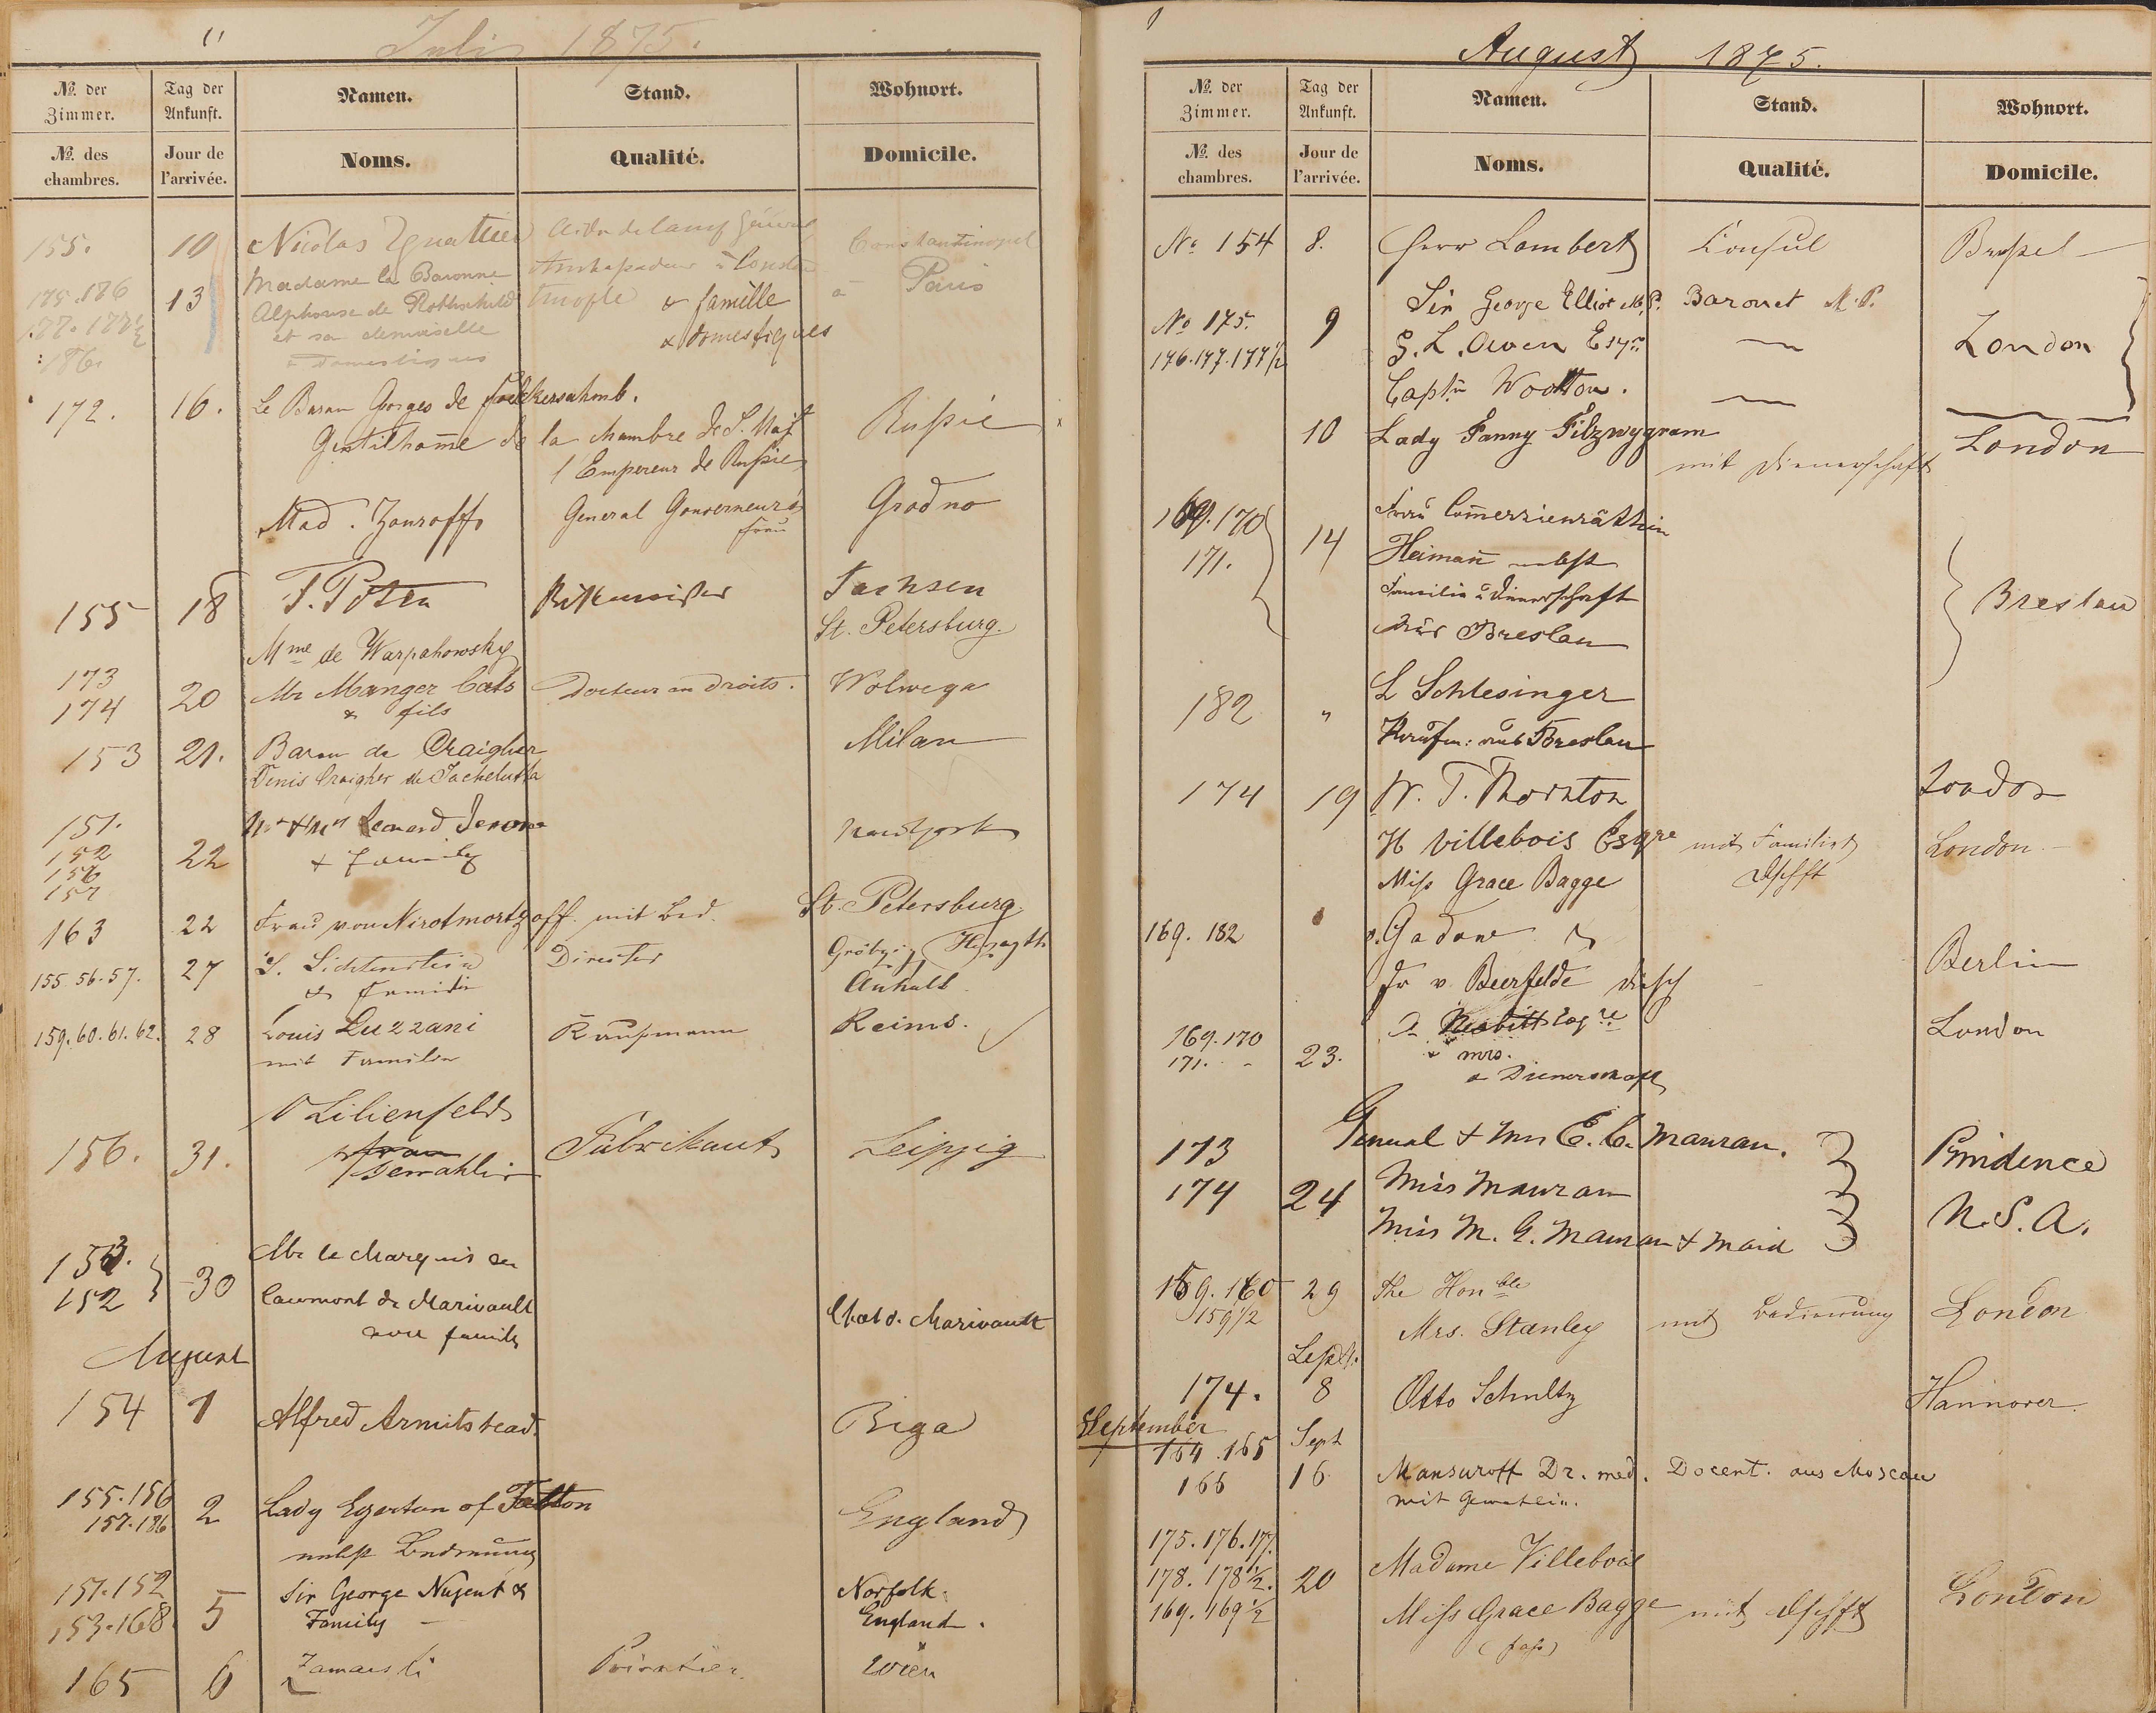 Juli 1875.
No. der Zimmer. Tag der Ankunft. Namen. Stand. Wohnort.
No. des chambres. Jour de l'arrivée. Noms. Qualité. Domicile.
155. 10 Nicolas Ignatiew Constantinopel
Madame la Baronne
175.176 13 Alphonse de Rothschild & famille Paris
177.177½ et sa demoiselle & domestiques
186. & domestiques
172. 16. Le Baron Georges de
Gentilhom̄e de la chambre de S. Maj. Rußie
l'Empereur de Rußie
Mad. Zouroff General Gouverneurs Frau Grodno
155 18 Rittmeister Sachsen
Mme de Warpahowsky St. Petersburg.
173
174 20 Mr Manger Cats Docteur en droits. Wolwega
& fils
153 21. Baron de Craigher Milan
Denis Craigher de Jachelutta
151. Mr & Mrs Leonard Jerome
152 22 & family
156
157
163 22 Frau von Nirotmortzoff. mit Bed. St. Petersburg
155.56.57. 27 S. Lichtenstein Director
& Familie Anhalt
159.60.61.62. 28 Louis Luzzani Kaufmann Reims.
mit Familie
Lilienfeld
156. 31. Gemahlin Fabrikant Leipzig
153. Mr le Marquis de
152 30 Caumont de Marivault
avec famille Chat d. Marivault
August
154 1 Alfred Armitstead. Riga
155.156
157.186 2 Lady Egerton of Tatton England
nebst Bedienung
151.152 Sir George Nugent & Norfolk.
153.168 5 Family England.
165 6 Zamarski Wien
August 1875.
No. der Zimmer. Tag der Ankunft. Namen. Stand. Wohnort.
No. des chambres. Jour de l'arrivée. Noms. Qualité. Domicile.
No 154 8. Herr Lambert Consul Brußel
Sir George Elliot M.P. Baronet M.P.
No 175. 9 G. L. Owen Esqre London
176.177.177½
Captn Wootton.
10 Lady Fanny Fitzwygram London
mit Dienerschaft
169.170 Frau Com̄erzienräthin
171. 14 Heiman̄ nebst
Familie u Dienerschaft Breslau
aus Breslau
182 " L Schlesinger
Kaufm: aus Breslau
174 19 W. T. Thornton London
H Villebois Esqre mit Familie London
Miss Grace Bagge Dschft
169. 182 v. Gadow
Fr v. Beerfelde Berlin
Nesbitt Esqre London
169.170 & mrs.
171. 23. & Dienerschaft
173 General & Mrs E. C. Mauran. Providence
174 24 Miss Mauran
Miss M. G. Mauran & maid U.S.A.
159.160 29 The Honble
159½ Mrs. Stanley mit Bedienung London
Sept.
174. 8 Otto Schultz Hannover.
September
164.165 Sept
165 16 Mansuroff Dr. med. Docent. aus Moscau
mit Gemahlin.
175.176.177.
178. 178½. 20 Madame Villebois
169. 169½ Miss Grace Bagge mit Dschft London